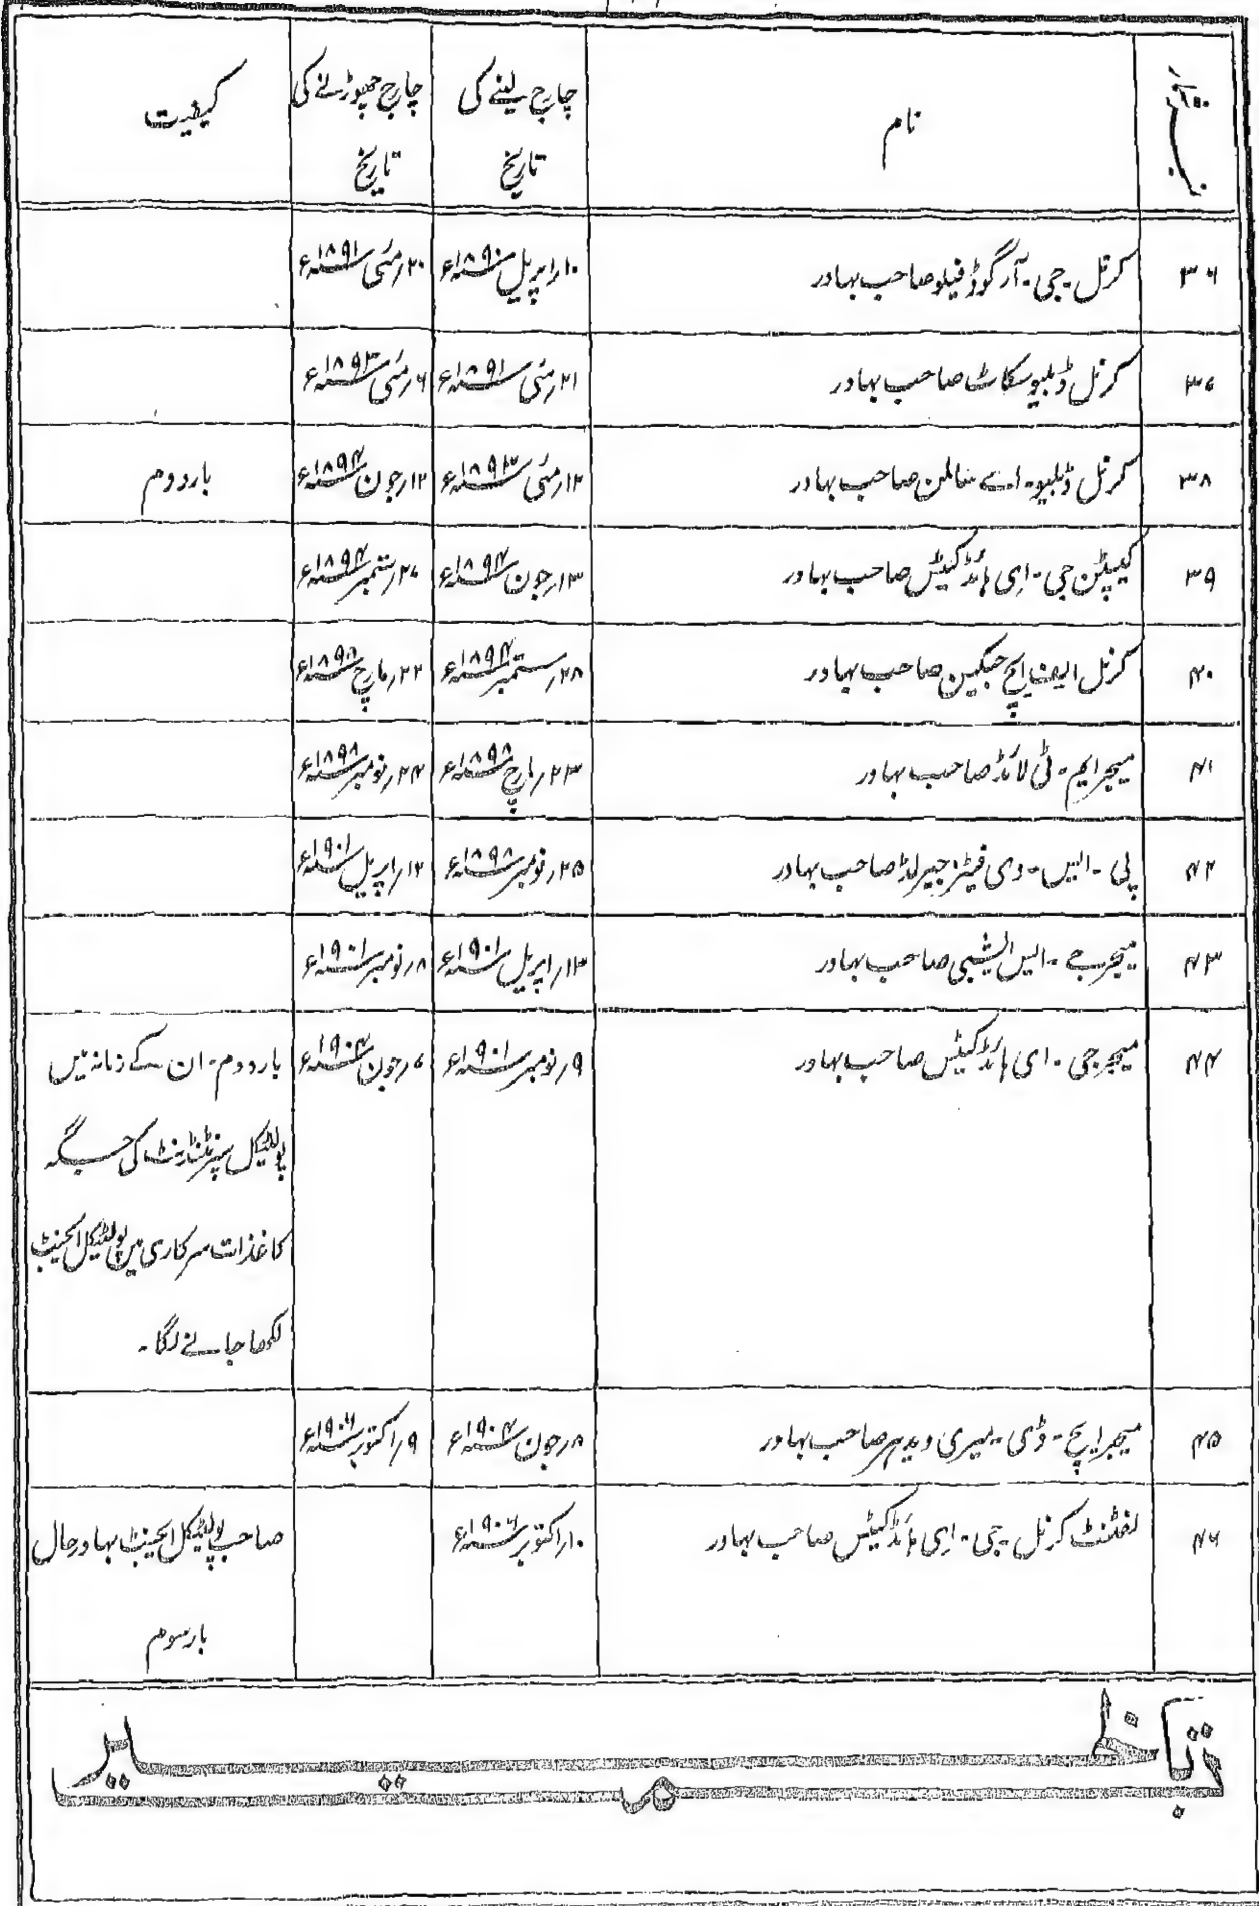 نمبر شمار نام چارج لینے کی تاریخ چارج چھوڑنے کی تاریخ کیفیت
۳۶ کرنل۔جی۔آر گوڈفیلو صاحب بہادر ۱۰ر اپریل سنہ ۱۸۹۰ء ۲۰ر مئی سنہ ۱۸۹۱ء
۳۷ کرنل ڈبلیو سکاٹ صاحب بہادر ۲۱ر مئی سنہ ۱۸۹۱ء ۶ر مئی سنہ ۱۸۹۳ء
۳۸ کرنل ڈبلیو۔اے سالمن صاحب بہادر ۱۲ر مئی سنہ ۱۸۹۳ء ۱۲ر جون سنہ ۱۸۹۴ء بار دوم
۳۹ کیپٹن جی۔ای ہائڈ کیٹس صاحب بہادر ۱۳ر جون سنہ ۱۸۹۴ء ۲۷ر ستمبر سنہ ۱۸۹۴ء
۴۰ کرنل ایف ایچ جیکسن صاحب بہادر ۲۸ر ستمبر سنہ ۱۸۹۴ء ۲۲ر مارچ سنہ ۱۸۹۸ء
۴۱ میجر ایم۔ٹی لائڈ صاحب بہادر ۲۳ر مارچ سنہ ۱۸۹۸ء ۲۴ر نومبر سنہ ۱۸۹۸ء
۴۲ پی۔ایس۔وی فیٹز جیرلڈ صاحب بہادر ۲۵ر نومبر سنہ ۱۸۹۸ء ۱۲ر اپریل سنہ ۱۹۰۱ء
۴۳ میجر جے۔ایس ایشبی صاحب بہادر ۱۳ر اپریل سنہ ۱۹۰۱ء ۸ر نومبر سنہ ۱۹۰۱ء
۴۴ میجر جی۔ای ہائڈ کیٹس صاحب بہادر ۹ر نومبر سنہ ۱۹۰۱ء ۷ر جون سنہ ۱۹۰۴ء بار دوم۔ان کے زمانہ میں
پولٹیکل سپرنٹنڈنٹ کی جگہ
کاغذات سرکاری میں پولٹیکل ایجنٹ
لکھا جانے لگا۔
۴۵ میجر ایچ۔ڈی۔میری ویدر صاحب بہادر ۸ر جون سنہ ۱۹۰۴ء ۹ر اکتوبر سنہ ۱۹۰۶ء
۴۶ لفٹننٹ کرنل۔جی۔ای ہائڈ کیٹس صاحب بہادر ۱۰ر اکتوبر سنہ ۱۹۰۶ء صاحب پولیٹیکل ایجنٹ بہادر حال
بار سوم